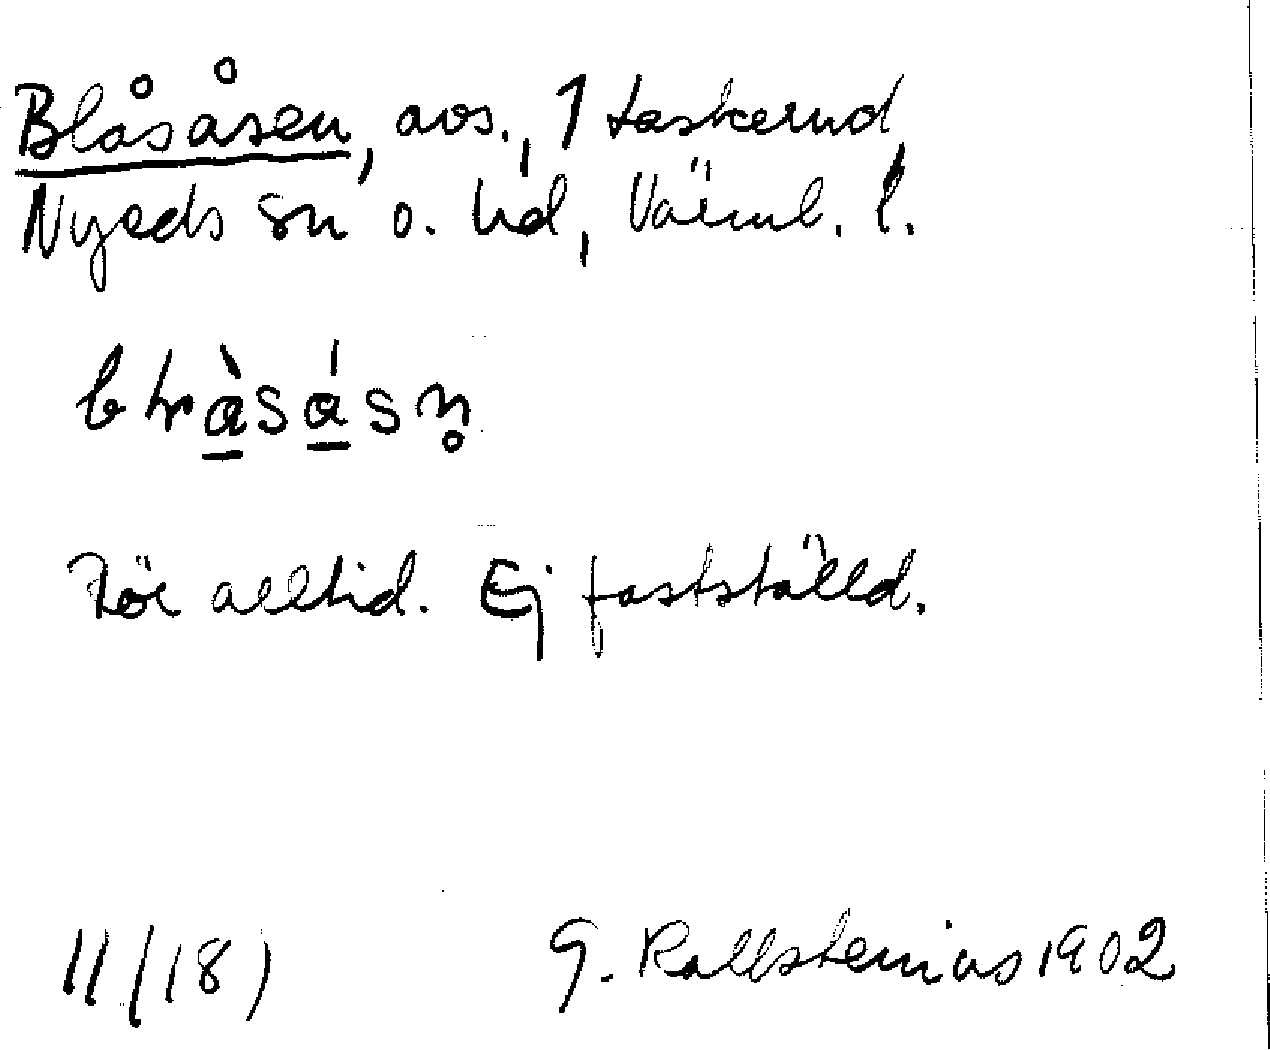 Blåsåsen, avs., 1 Laskerud
Nyeds sn o. hd, Värml. l.
Hör alltid. Ej fastställd.
11/18) G. Kallstenius 1902